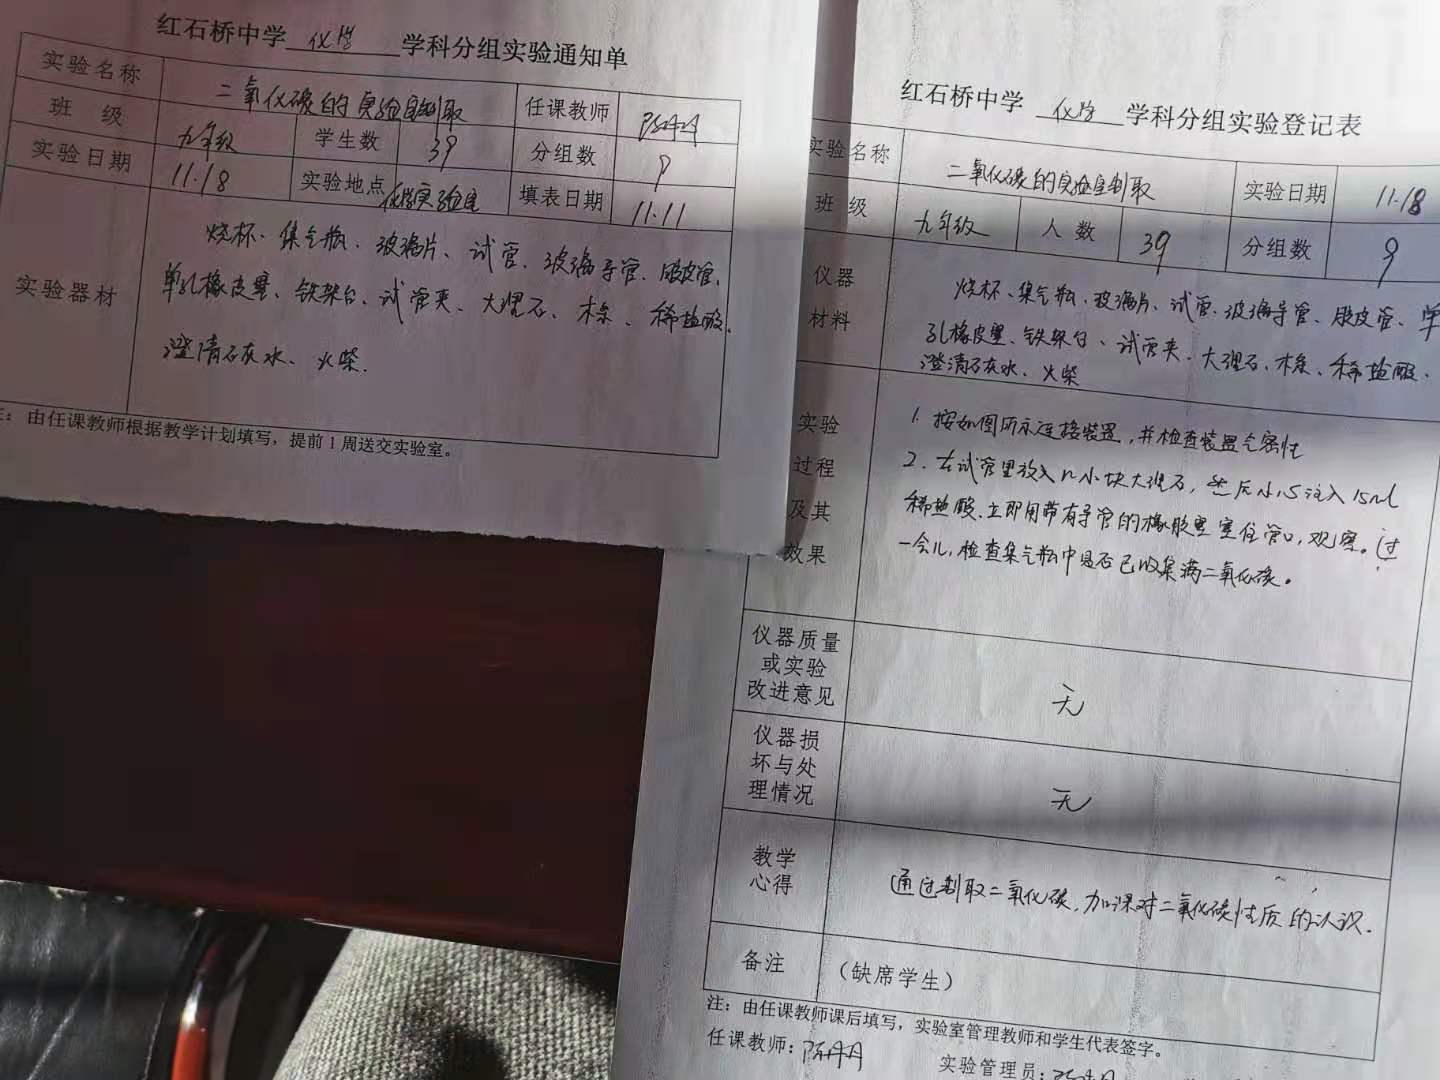 红石桥中学 化学 学科分组实验通知单
实验名称 二氧化碳的实验室制取 任课教师 陈丹丹
班 级 九年级 学生数 39 分组数 9
实验日期 11.18 实验地点 化学实验室 填表日期 11.11
实验器材
烧杯、集气瓶、玻璃片、试管、玻璃导管、胶皮管、
单孔橡皮塞、铁架台、试管夹、大理石、木条、稀盐酸、
澄清石灰水、火柴.
注：由任课教师根据教学计划填写，提前1周送交实验室。
红石桥中学 化学 学科分组实验登记表
实验名称 二氧化碳的实验室制取 实验日期 11.18
班 级 九年级 人 数 39 分组数 9
仪器
材料
烧杯、集气瓶、玻璃片、试管、玻璃导管、胶皮管、单
孔橡皮塞、铁架台、试管夹、大理石、木条、稀盐酸、
澄清石灰水、火柴
实验
过程
及其
效果
1. 按如图所示连接装置，并检查装置气密性
2. 在试管里放入n小块大理石，然后小心注入15ml
稀盐酸、立即用带有导管的橡胶塞塞住管口，观察。过
一会儿，检查集气瓶中是否已收集满二氧化碳。
仪器质量
或实验
改进意见
无
仪器损
坏与处
理情况
无
教学
心得
通过制取二氧化碳，加深对二氧化碳性质的认识.
备注 （缺席学生）
注：由任课教师课后填写，实验室管理教师和学生代表签字。
任课教师：陈丹丹
实验管理员：